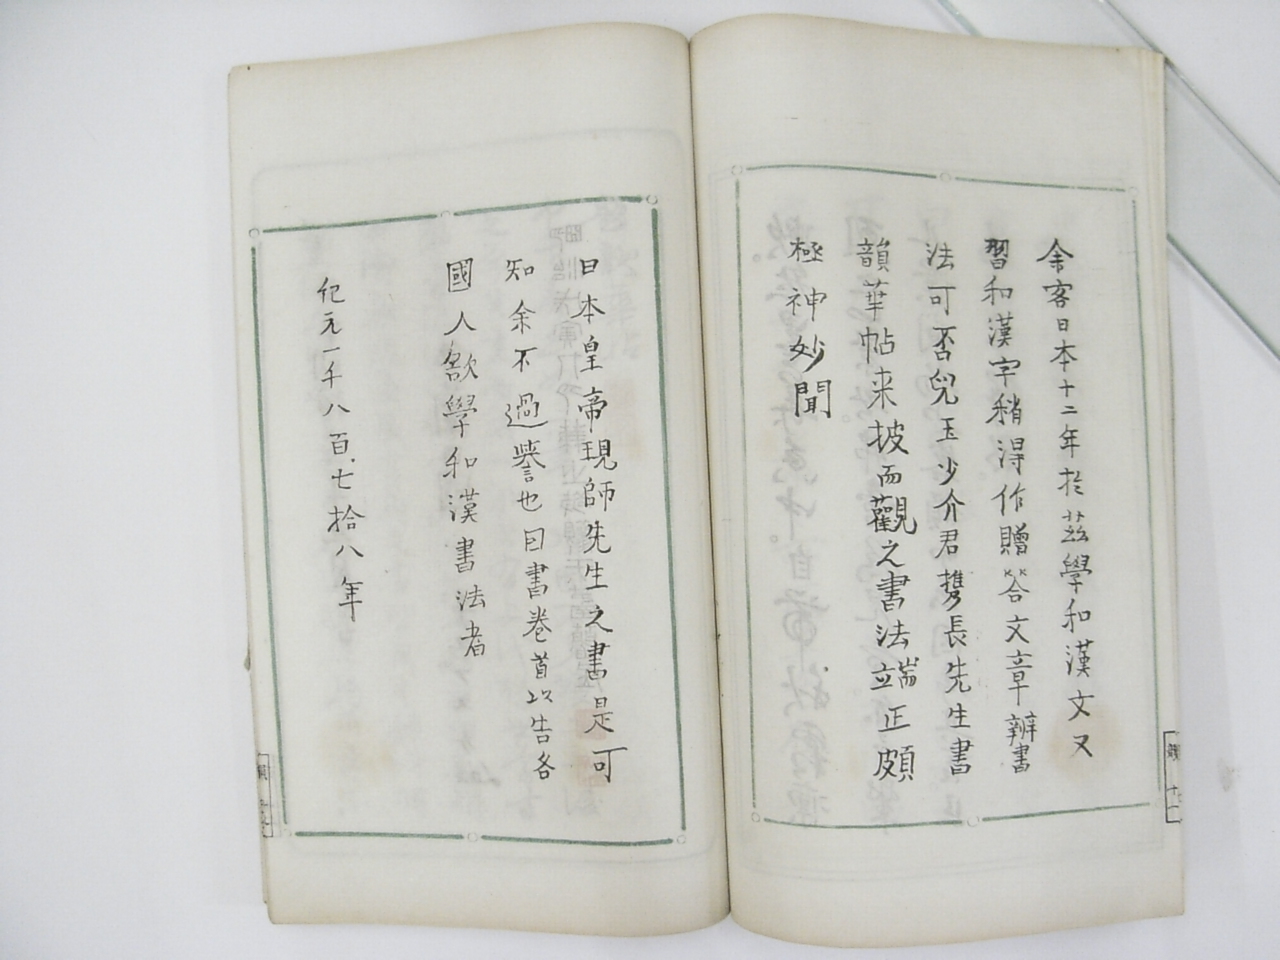 余客日本十二年於茲學和漢文又
習和漢字稍得作贈答文章辨書
法可否兒玉少介君携長先生書
韻華帖来披而觀之書法端正頗
極神妙聞
日本皇帝現師先生之書是可
知余不過譽也曰書卷首以告各
國人欲學和漢書法者
紀元一千八百七拾八年